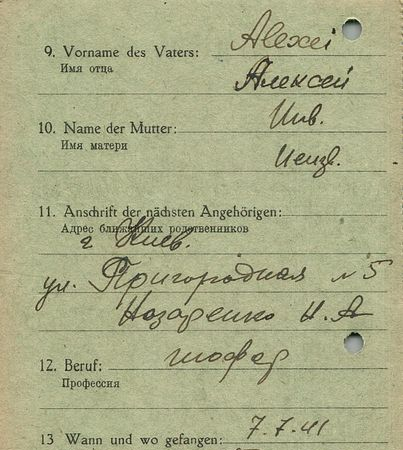 Alexei
9. Vorname des Vaters:
Имя отца
Алексей
10. Name der Mutter:
Имя матери
Неизв.
11. Anschrift der nächsten Angehörigen:
Адрес ближайших родственников
г. Киев.
ул. Пригородная №5
Назаренко Н. А
12. Beruf:
Профессия
шофер
13 Wann und wo gefangen:
7.7.41